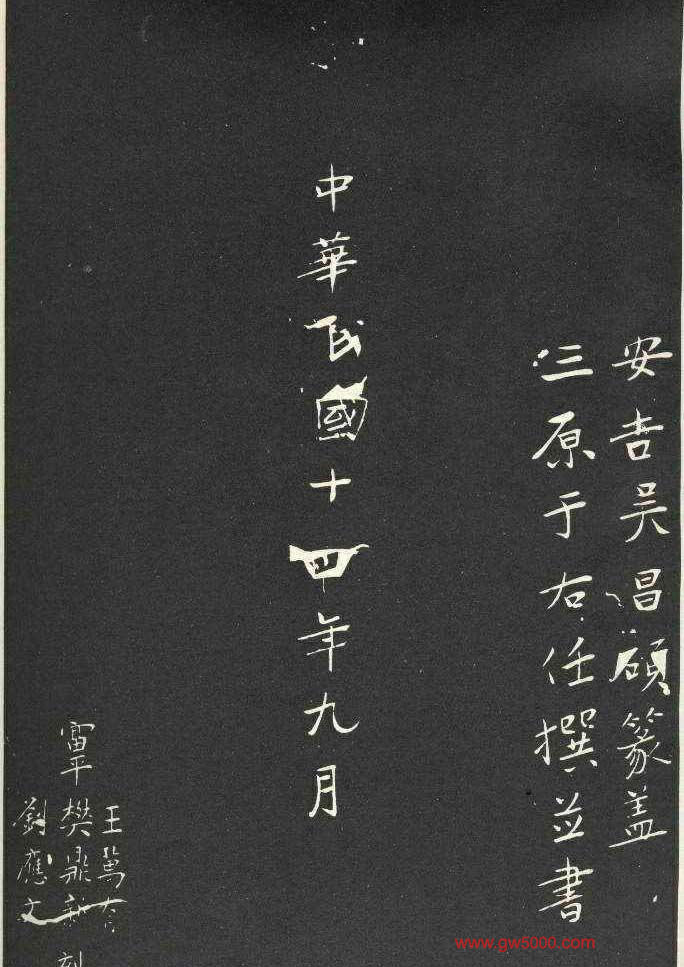 安吉吴昌碩篆盖
三原于右任撰並書
中華民國十四年九月
王萬
富平樊鼎新刻
劉應文
www.gw5000.com